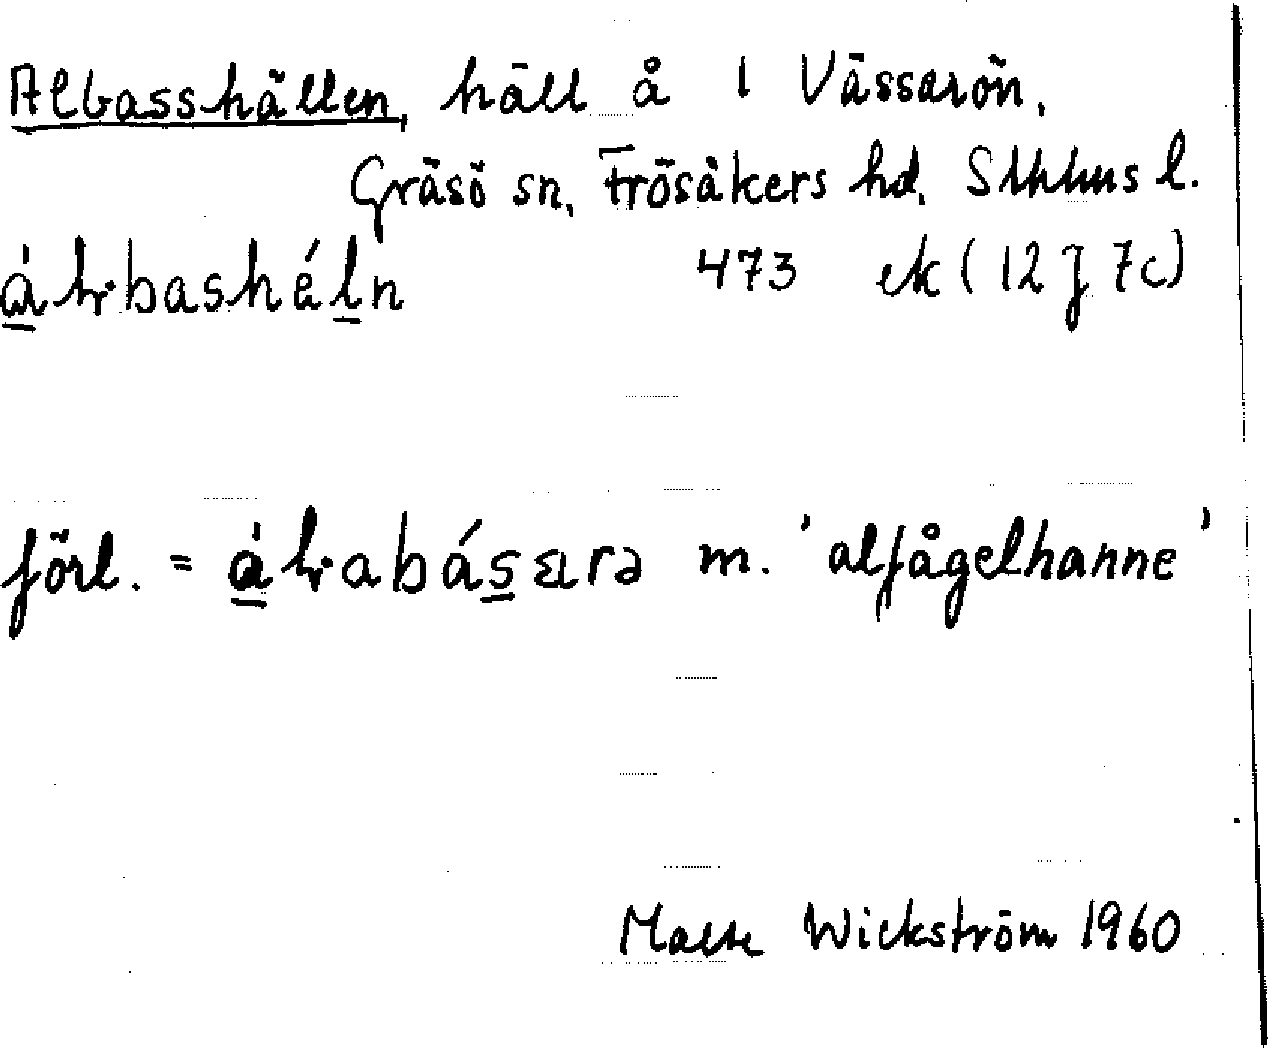 Albasshällen, häll å I Vässarön,
Gräsö sn, Frösåkers hd, Sthlms l.
473 ek (12 J 7c)
förl. = m. 'alfågelhanne'
Malte Wickström 1960